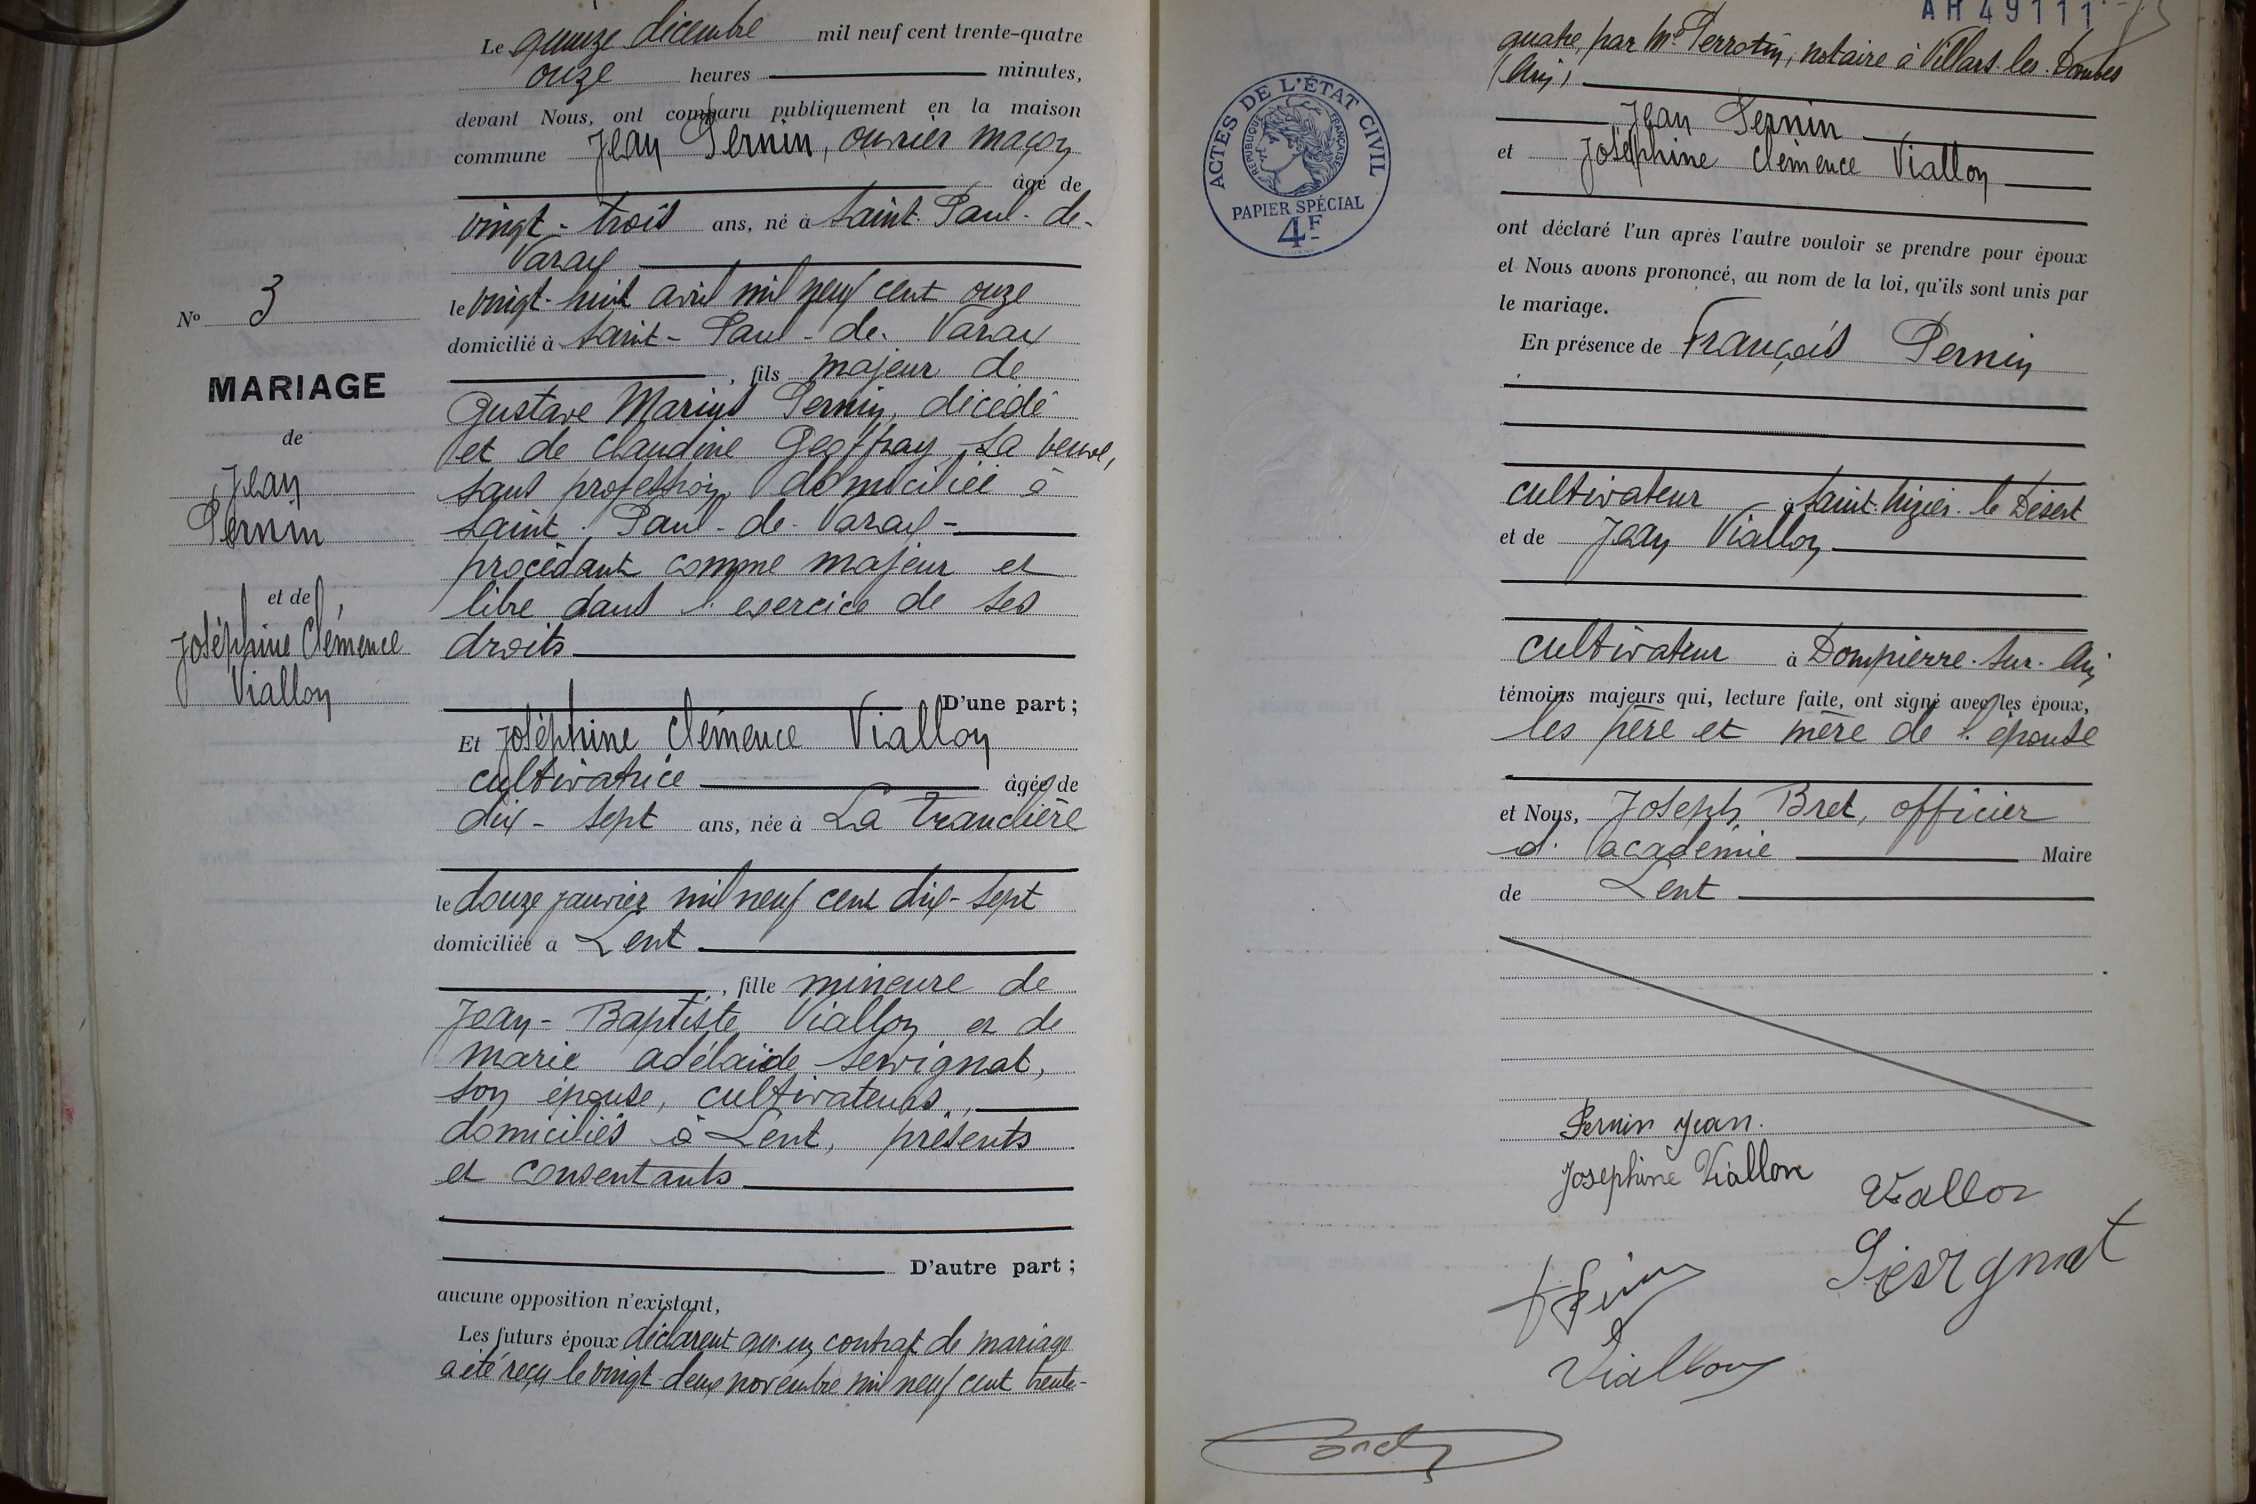 Le quinze décembre mil neuf cent trente-quatre
onze heures minutes,
devant Nous, ont comparu publiquement en la maison
commune Jean Pernin, ouvrier maçon
âgé de
vingt-trois ans, né à Saint-Paul-de-
Varax
le vingt-huit avril mil neuf cent onze
domicilié à Saint-Paul-de-Varax
, fils majeur de
Gustave Marius Pernin, décédé
et de Claudine Geoffray sa veuve,
sans profession domiciliée à
Saint-Paul-de-Varax-
procédant comme majeur et
libre dans l'exercice de ses
droits
D'une part ;
Et Joséphine Clémence Viallon
cultivatrice âgée de
dix-sept ans, née à La Tranclière
le douze janvier mil neuf cent dix-sept
domiciliée a Lent
, fille mineure de
Jean-Baptiste Viallon et de
Marie Adélaïde Servignat,
son épouse, cultivateurs,
domiciliés à Lent, présents
et consentants
D'autre part ;
aucune opposition n'existant,
Les futurs époux déclarent qu'un contrat de mariage
a été reçu le vingt-deux novembre mil neuf cent trente-
No 3
MARIAGE
de
Jean
Pernin
et de
Joséphine Clémence
Viallon
AH 49111
quatre, par Me Perrotin, notaire à Villars-les-Dombes
(Ain),
Jean Pernin
et Joséphine Clémence Viallon
ont déclaré l'un après l'autre vouloir se prendre pour époux
et Nous avons prononcé, au nom de la loi, qu'ils sont unis par
le mariage.
En présence de François Pernin
cultivateur à Saint-Nizier-le-Désert
et de Jean Viallon
cultivateur à Dompierre-sur-Ain
témoins majeurs qui, lecture faite, ont signé avec les époux,
les père et mère de l'épouse
et Nous, Joseph Bret, officier
d'académie Maire
de Lent
ACTES DE L'ÉTAT CIVIL
RÉPUBLIQUE FRANÇAISE
PAPIER SPÉCIAL
4F
Pernin Jean.
Josephine Viallon
Viallon
Servignat
Viallon